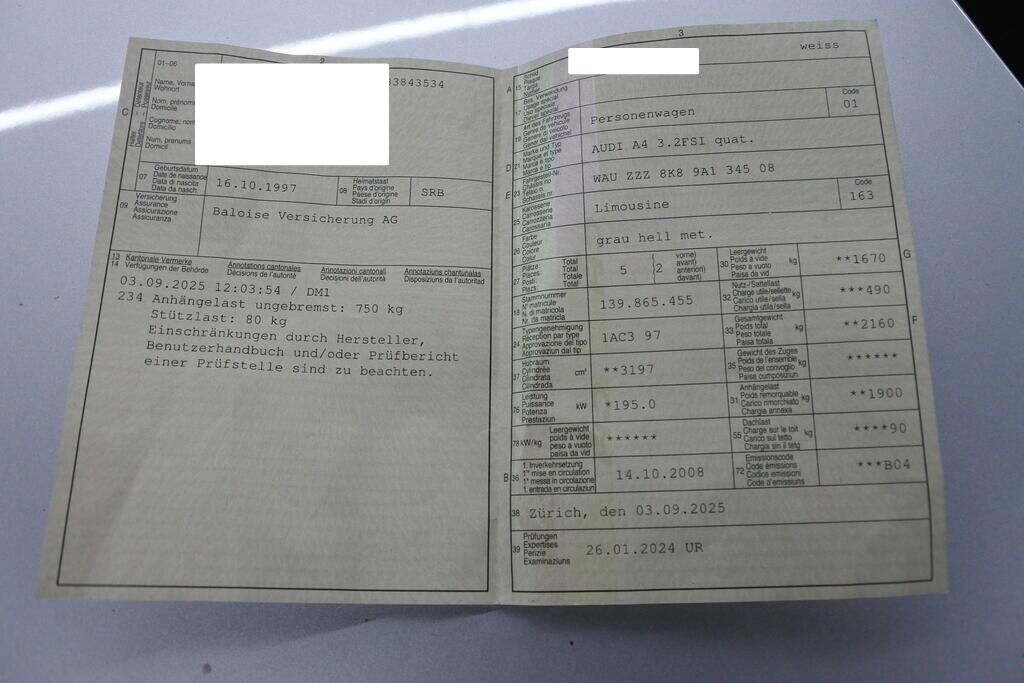 2
01-06
Name, Vorna
Wohnort
Nom, prénoms
Domicile
Cognome, nom
Domicilio
Num, prenums
Domicil
C
33843534
07
Geburtsdatum
Date de naissance
Data di nascita
Data da nasch.
16.10.1997
08
Heimatstaat
Pays d'origine
Paese d'origine
Stadi d'origin
SRB
09
Versicherung
Assurance
Assicurazione
Assicuranza
Baloise Versicherung AG
13 Kantonale Vermerke Annotations cantonales Annotazioni cantonali Annotaziuns chantunalas
14 Verfügungen der Behörde Décisions de l'autorité Decisioni dell'autorità Disposiziuns da l'autoritad
03.09.2025 12:03:54 / DM1
234 Anhängelast ungebremst: 750 kg
Stützlast: 80 kg
Einschränkungen durch Hersteller,
Benutzerhandbuch und/oder Prüfbericht
einer Prüfstelle sind zu beachten.
3
A
15
Schild
Plaque
Targa
weiss
17
Bes. Verwendung
Usage spécial
Uso speciale
Diever spezial
19
Art des Fahrzeugs
Genre de véhicule
Genere di veicolo
Gener dal vehichel
Personenwagen
Code
01
D
21
Marke und Typ
Marque et type
Marca e tipo
Marca e tip
AUDI A4 3.2FSI quat.
E
23
Fahrgestell-Nr.
Châssis no
Telaio n.
Schassis nr.
WAU ZZZ 8K8 9A1 345 08
25
Karosserie
Carrosserie
Carrozzeria
Carossaria
Limousine
Code
163
26
Farbe
Couleur
Colore
Colur
grau hell met.
27
Plätze: Total
Places: Total
Posti: Totale
Plazs: Total
5
(2
vorne)
avant)
anteriori)
davant)
30
Leergewicht
Poids à vide
Peso a vuoto
Paisa da vid
kg
**1670
G
18
Stammnummer
N° matricule
N. di matricola
Nr. da matricla
139.865.455
32
Nutz-/Sattellast
Charge utile/sellette
Carico utile/sella
Chargia utila/sella
kg
***490
24
Typengenehmigung
Réception par type
Approvazione del tipo
Approvaziun dal tip
1AC3 97
33
Gesamtgewicht
Poids total
Peso totale
Paisa totala
kg
**2160
F
37
Hubraum
Cylindrée
Cilindrata
Cilindrada
cm³
**3197
35
Gewicht des Zuges
Poids de l'ensemble
Peso del convoglio
Paisa cumposiziun
kg
******
76
Leistung
Puissance
Potenza
Prestaziun
kW
*195.0
31
Anhängelast
Poids remorquable
Carico rimorchiato
Chargia annexa
kg
**1900
78 kW/kg
Leergewicht
poids à vide
peso a vuoto
paisa da vid
******
55
Dachlast
Charge sur le toit
Carico sul tetto
Chargia sin il tetg
kg
****90
B
36
1. Inverkehrsetzung
1re mise en circulation
1a messa in circolazione
1. entrada en circulaziun
14.10.2008
72
Emissionscode
Code émissions
Codice emissioni
Code d'emissiuns
***B04
38
Zürich, den 03.09.2025
39
Prüfungen
Expertises
Perizie
Examinaziuns
26.01.2024 UR